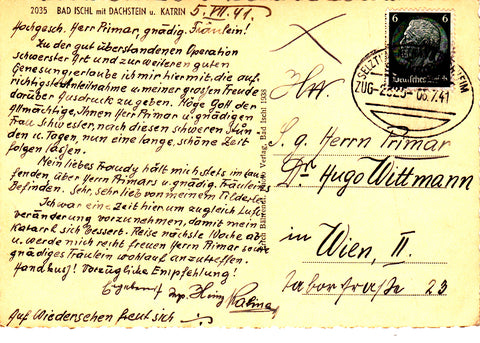 2035 BAD ISCHL mit DACHSTEIN u. KATRIN
5. VII. 41.
Hochgesch. Herr Primar, gnädig. Fräulein!
Zu der gut überstandenen Operation
schwerster Art und zur weiteren guten
Genesung erlaube ich mir hiermit die auf,
richtigste Anteilnahme u. meiner grossen Freude
darüber Ausdruck zu geben. Möge Gott der
Allmächtige, Ihnen Herr Primar u. gnädigen
Frau Schwester, nach diesen schweren Stun,
den u. Tagen, nun eine lange, schöne Zeit
folgen lassen.
Mein liebes Fraudy hält mich stets im lau,
fenden, über Herrn Primars u. gnäd. Fräuleins
Befinden. Sehr, sehr lieb von meinem
Ich war eine Zeit hier um zugleich Luft,
veränderung vorzunehmen, damit mein
Katarrh sich bessert. Reise nächste Woche ab
u. werde mich recht freuen Herrn Primar sowie
gnädiges Fräulein wohlauf anzutreffen.
Handkuss! Vorzügliche Empfehlung!
Auf Wiedersehen freut sich
Verlag, Bad Ischl 1938
6 6
Deutsches Reich
ZUG 2325 - 05.7.41
S. g. Herrn Primar
Dr Hugo Wittmann
in Wien, II.
Taborstraße 23